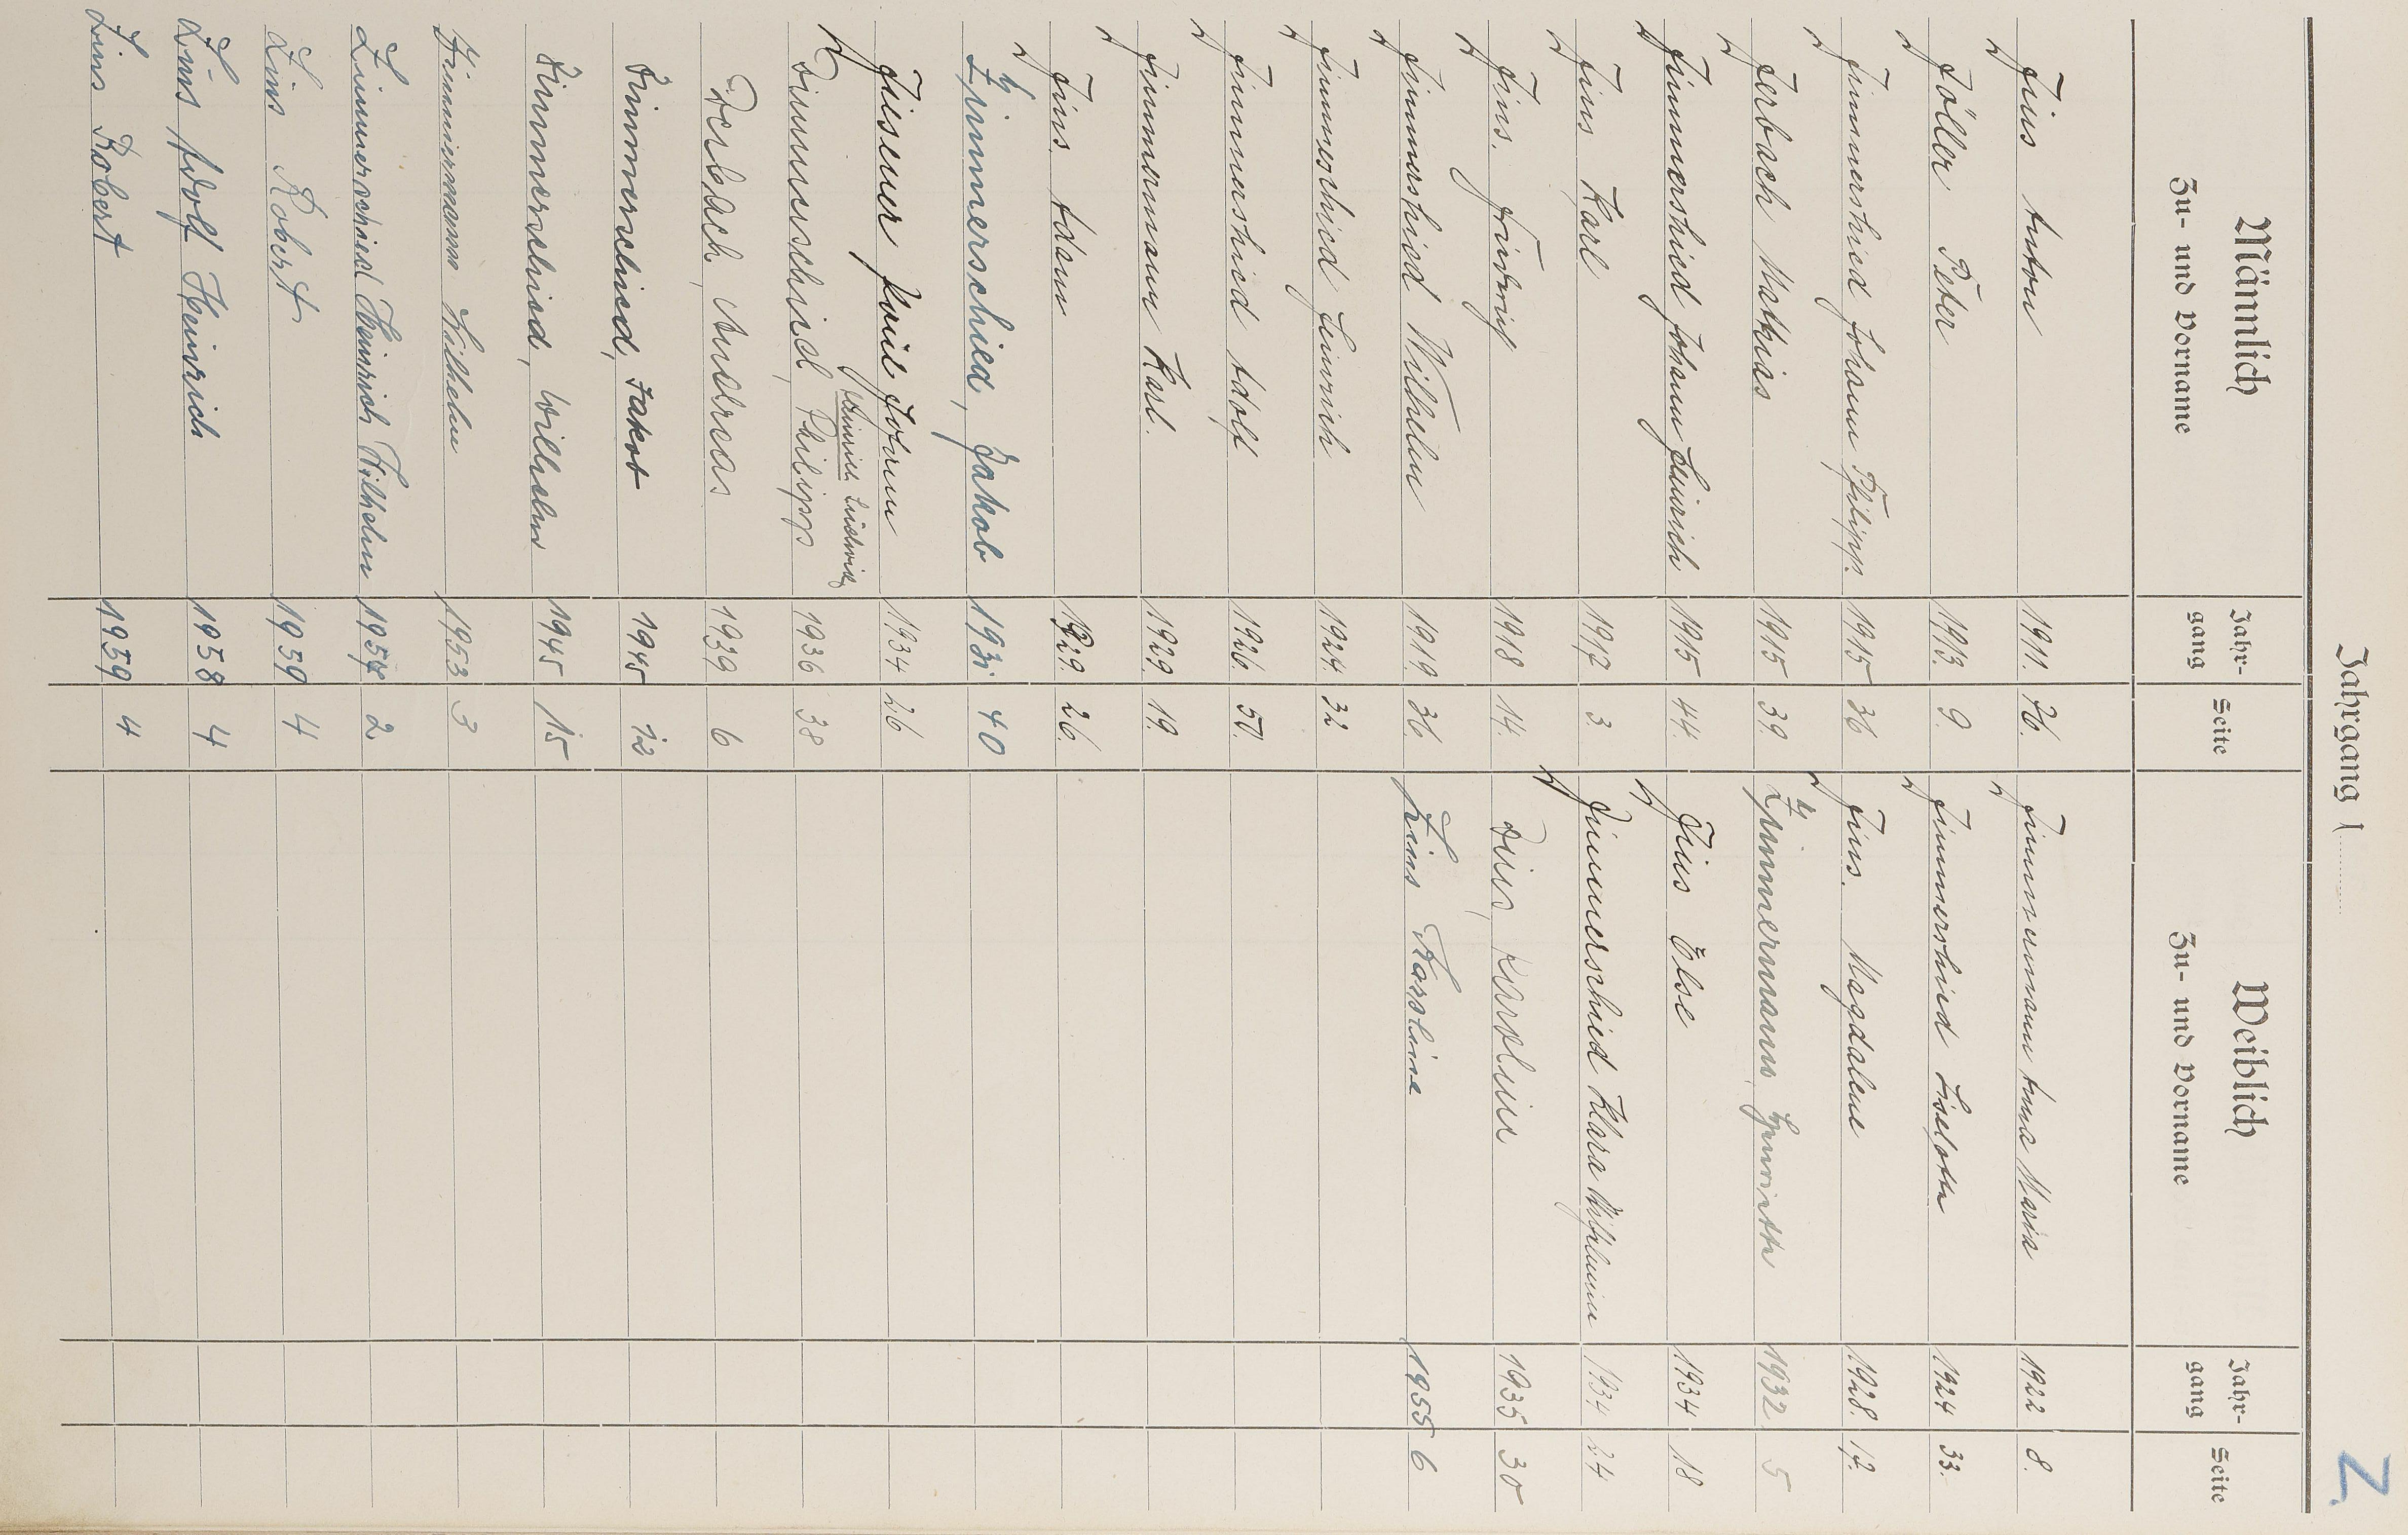 Jahrgang 1
Z.
Männlich
Zu- und Vorname
Jahr-
gang
Seite
Weiblich
Zu- und Vorname
Jahr-
gang
Seite
Zins Anton 1911. 26. Zimmermann Anna Maria 1922 8.
Zöller Peter 1913. 9. Zimmerschied Liselotte 1924 33.
Zimmerschied Johann Philipp. 1915 36 Zins. Magdalene 1928. 17.
Zerbach Mathias 1915 39. Zimmermann, Henriette 1932 5
Zimmerschied Johann Heinrich 1915 44. Zins Else 1934 18
Zins Karl 1917 3. Zimmerschied Klara Wilhelmine 1934 24
Zins. Ludwig 1918 14. Zins, Karoline 1935 30
Zimmerschied Wilhelm 1919. 36. Zins Karoline 1955 6
Zimmerschied Heinrich 1924. 32.
Zimmerschied Adolf 1926. 50.
Zimmermann Karl. 1929. 19.
Zins. Adam 1929. 26.
Zimmerschied, Jakob 1931. 40
Johann 1934 26
Heinrich Ludwig
Zimmerschied, Philipp 1936 38
Zerbach, Andreas 1939 6
Zimmerschied, Jakob 1945 12
Zimmerschied, Willhelm 1945 15
Zimmermann Wilhelm 1953 3
Zimmerschied Heinrich Wilhelm 1954 2
Zins Robert 1959 4
Zins Adolf Heinrich 1958 4
Zins Robert 1959 4